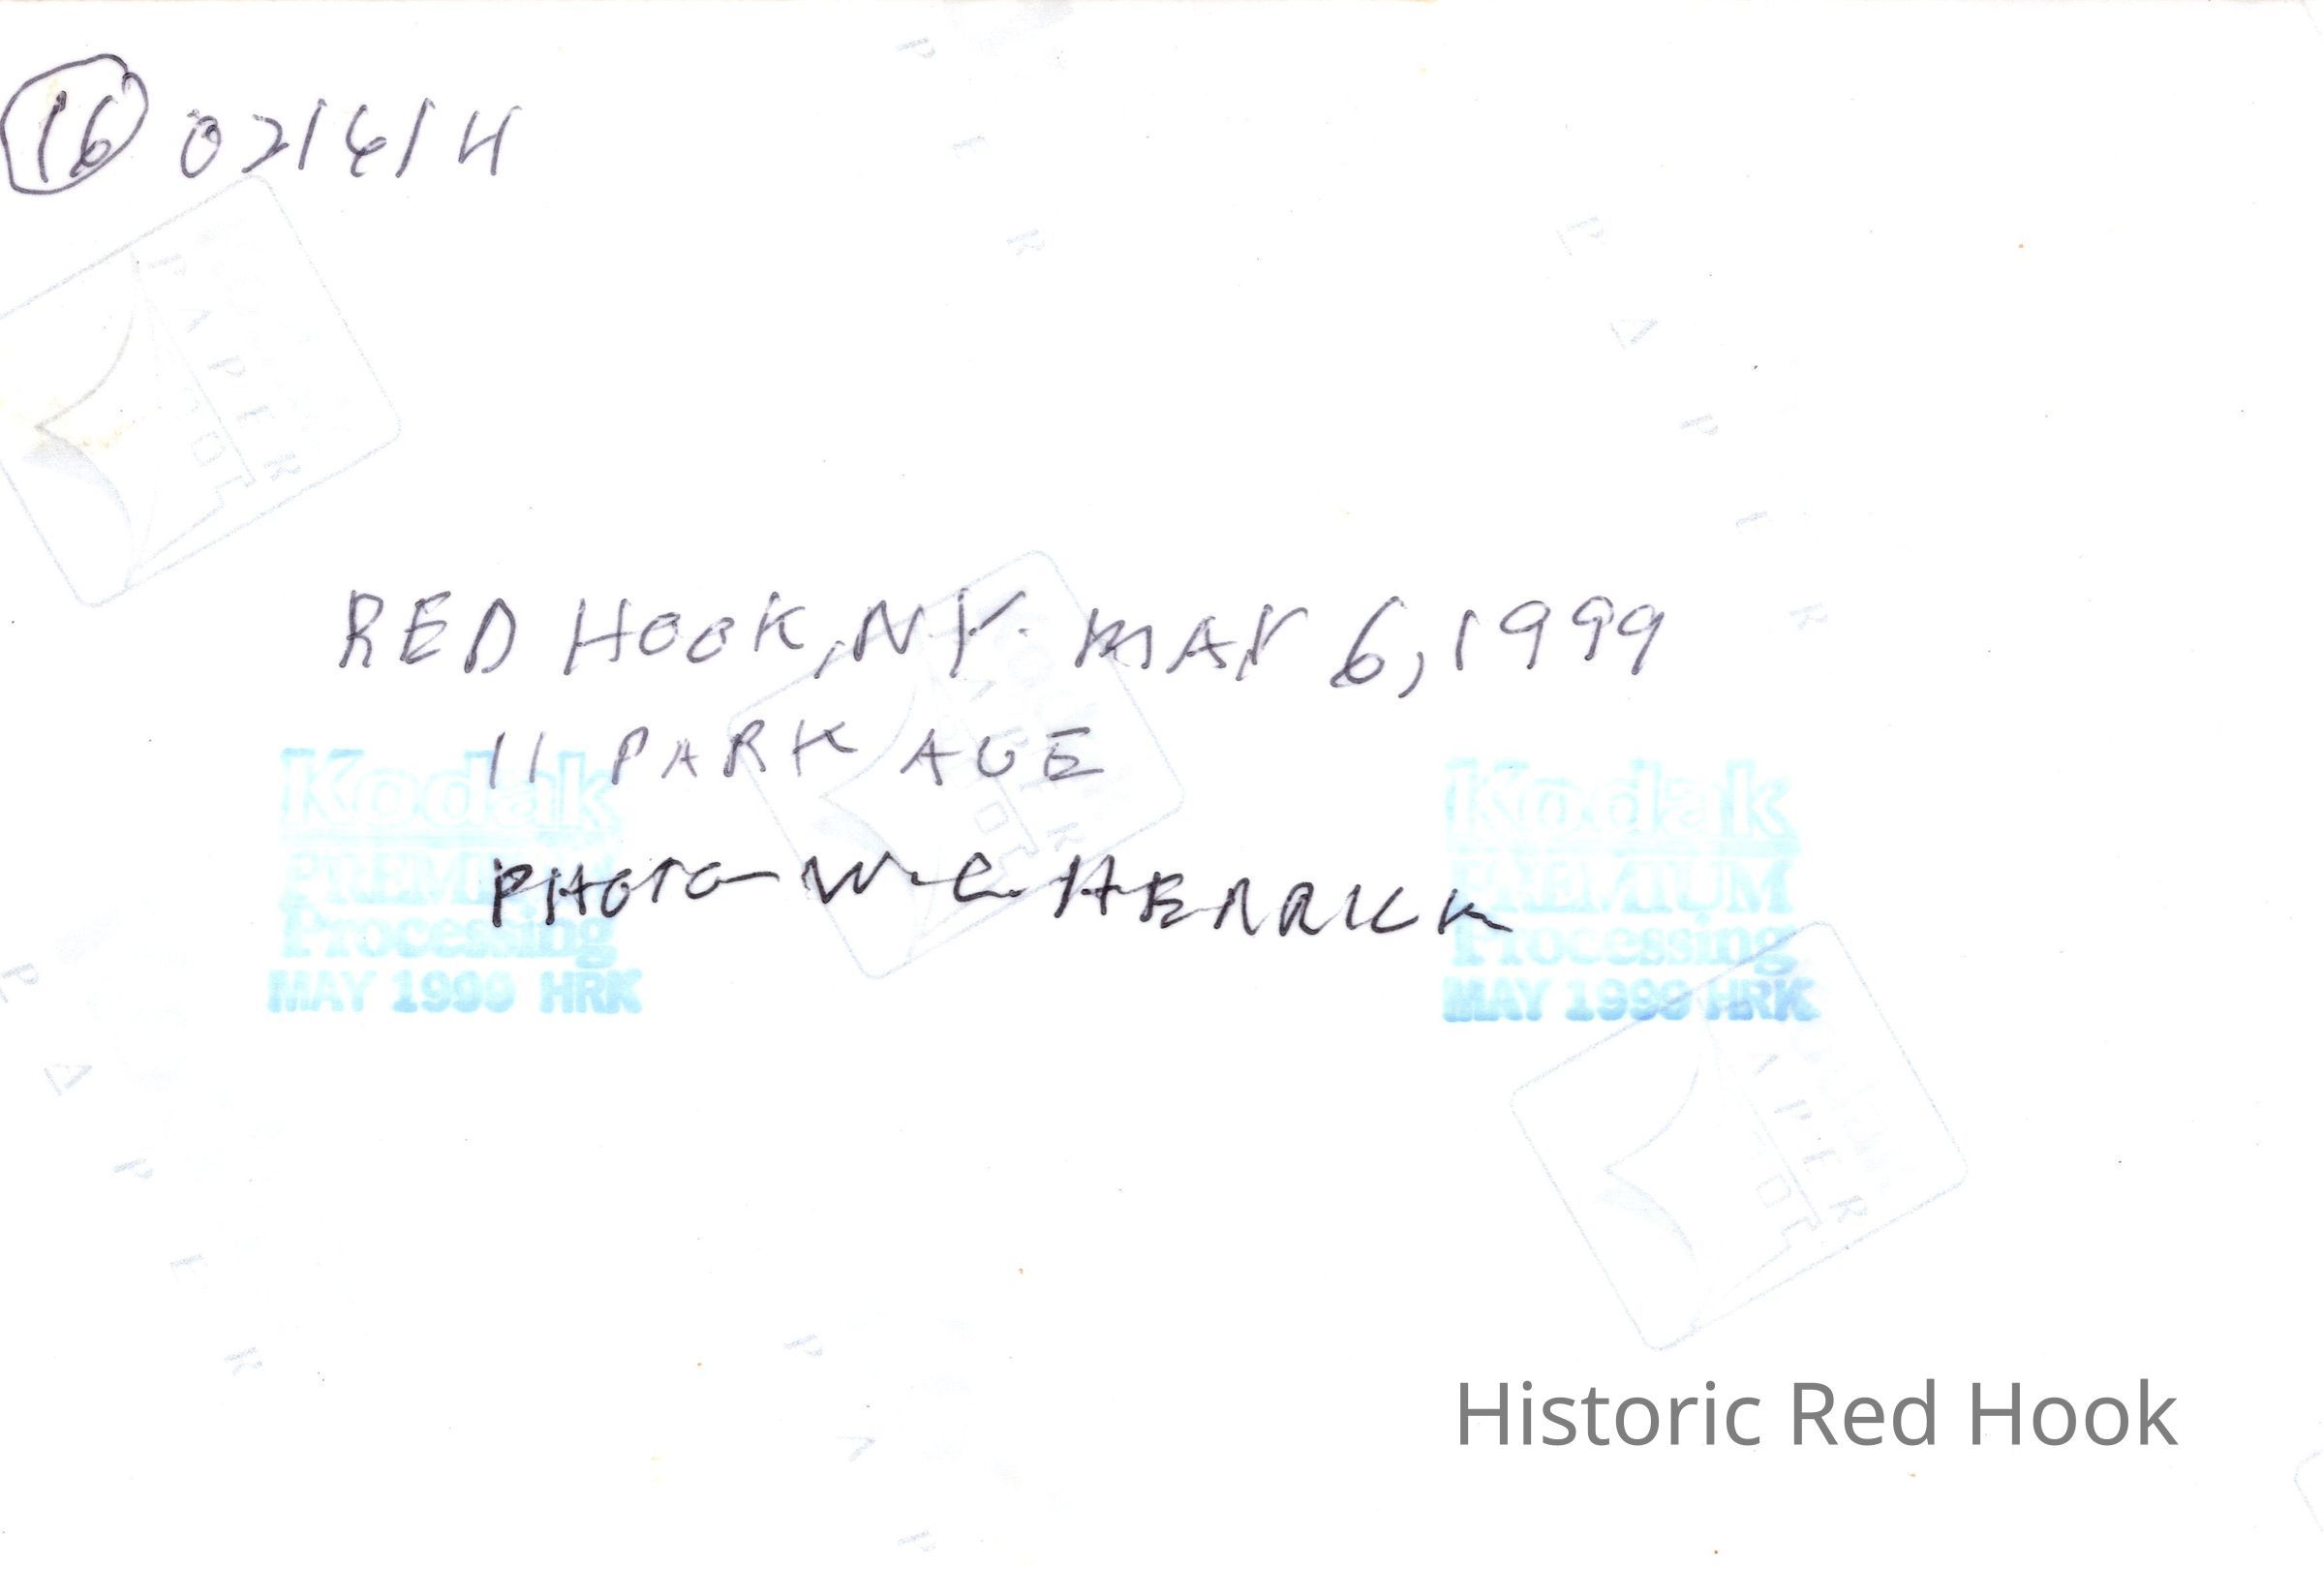 16 021614
RED HOOK, N.Y. MAY 6, 1999
11 PARK AVE
PHOTO - W. C. HERRICK
Kodak
PREMIUM
Processing
MAY 1999 HRK
Kodak
PREMIUM
Processing
MAY 1999 HRK
Historic Red Hook